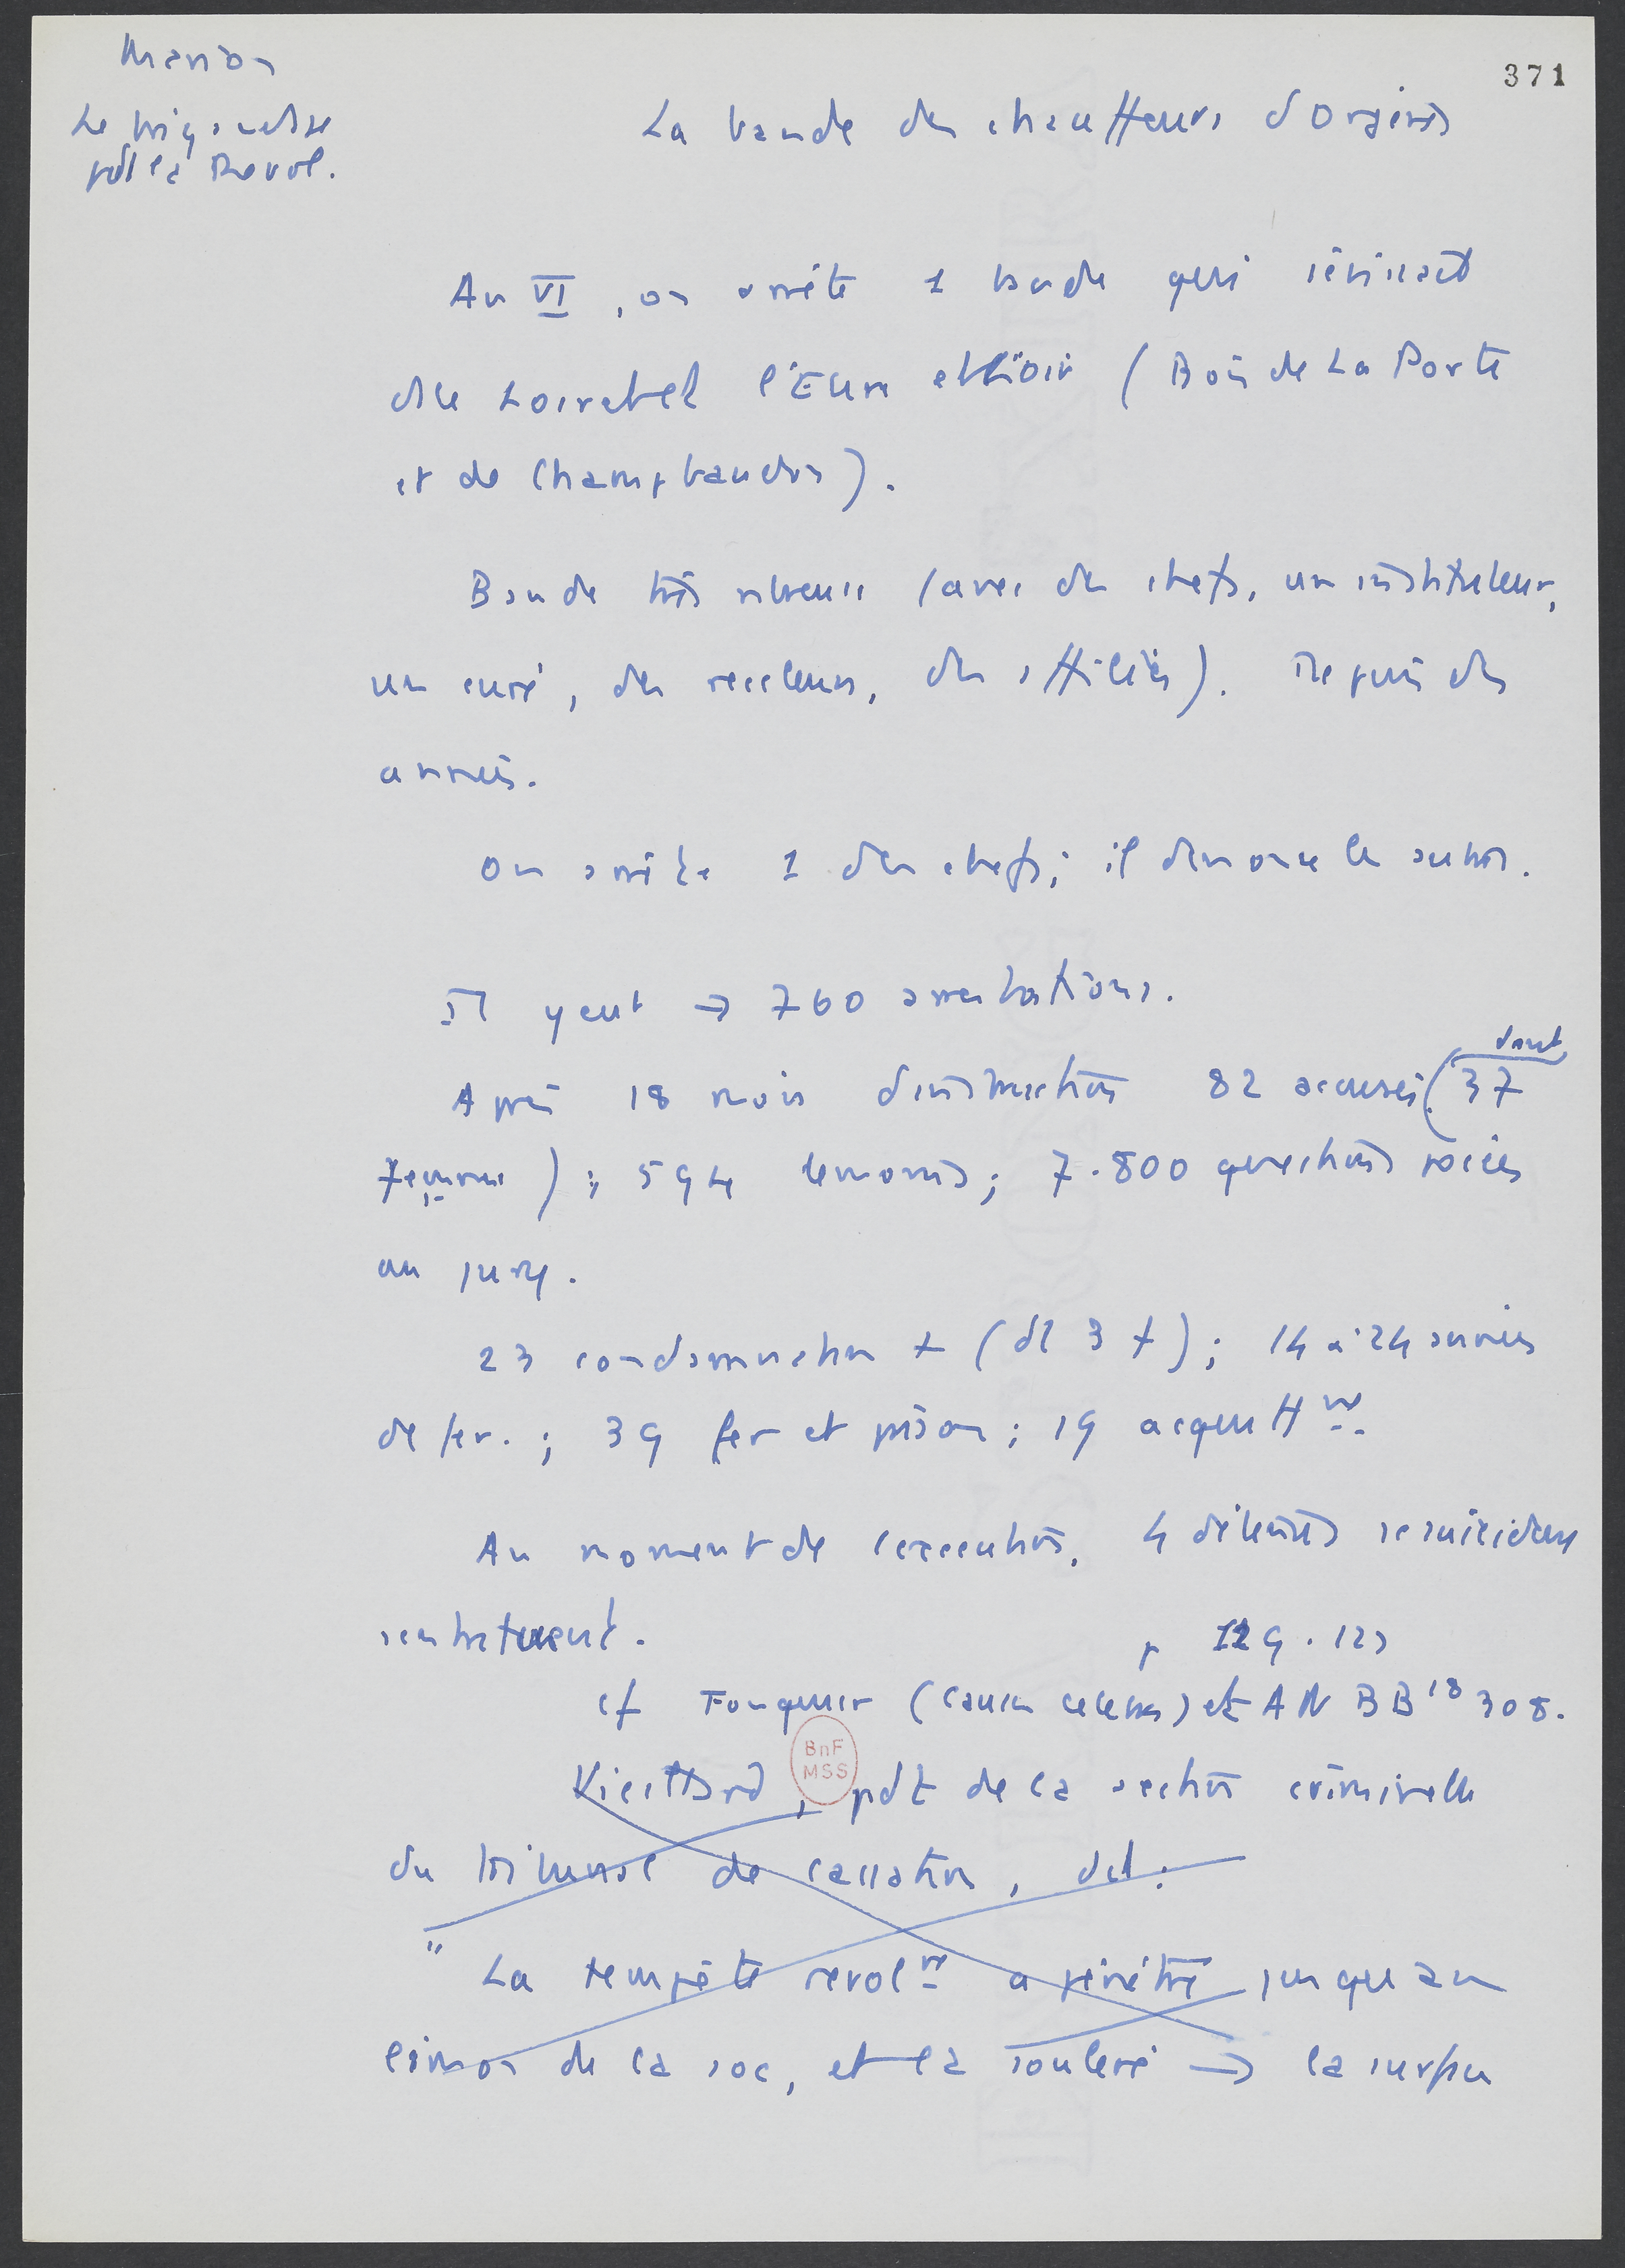 Marion
Le brigandage
pdt la Revol.
371
La bande des chauffeurs d'Orgères
An VI, on arrête 1 bande qui sévissait
du Loiret et l'Eure et Loir (Bois de La Porte
et de Champbaudon).
Bande très nbreuse (avec des chefs, un instituteur,
un curé, des receleurs, des affiliés). Depuis des
années.
On arrête 1 des chefs; il denonce les autres.
Il y eut → 760 arrestations.
Après 18 mois d'instruction 82 accusés (dont 37
femmes); 594 temoins; 7.800 questions posées
au jury.
23 condamnation † (dt 3 f); 14 à 24 années
de fer.; 39 fer et prison; 19 acquittnt.
Au moment de l'execution, 4 détenus se suicident
p 129.123
cf Fouquier (causes celebres) et AN BB18 308.
BnF
MSS
Vieillard, pdt de la section criminelle
du tribunal de cassation, dit:
" La tempête revolre a pénétré jusqu'au
limon de la soc, et l'a soulevé → la surface